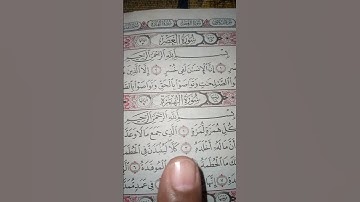 سُورَةُ العَصْرِ
بِسْمِ ٱللَّهِ ٱلرَّحْمَٰنِ ٱلرَّحِيمِ
إِنَّ ٱلْإِنسَٰنَ لَفِى خُسْرٍ إِلَّا ٱلَّذِينَ
ٱلصَّٰلِحَٰتِ وَتَوَاصَوْا۟ بِٱلْحَقِّ وَتَوَاصَوْا۟
سُورَةُ الهُمَزَةِ
بِسْمِ ٱللَّهِ ٱلرَّحْمَٰنِ ٱلرَّحِيمِ
لِّكُلِّ هُمَزَةٍ لُّمَزَةٍ ٱلَّذِى جَمَعَ مَالًا وَعَدَّدَهُۥ
مَالَهُۥٓ أَخْلَدَهُۥ كَلَّا لَيُنۢبَذَنَّ فِى
مَا ٱلْحُطَمَةُ ٱلْمُوقَدَةُ
فِى عَمَدٍ